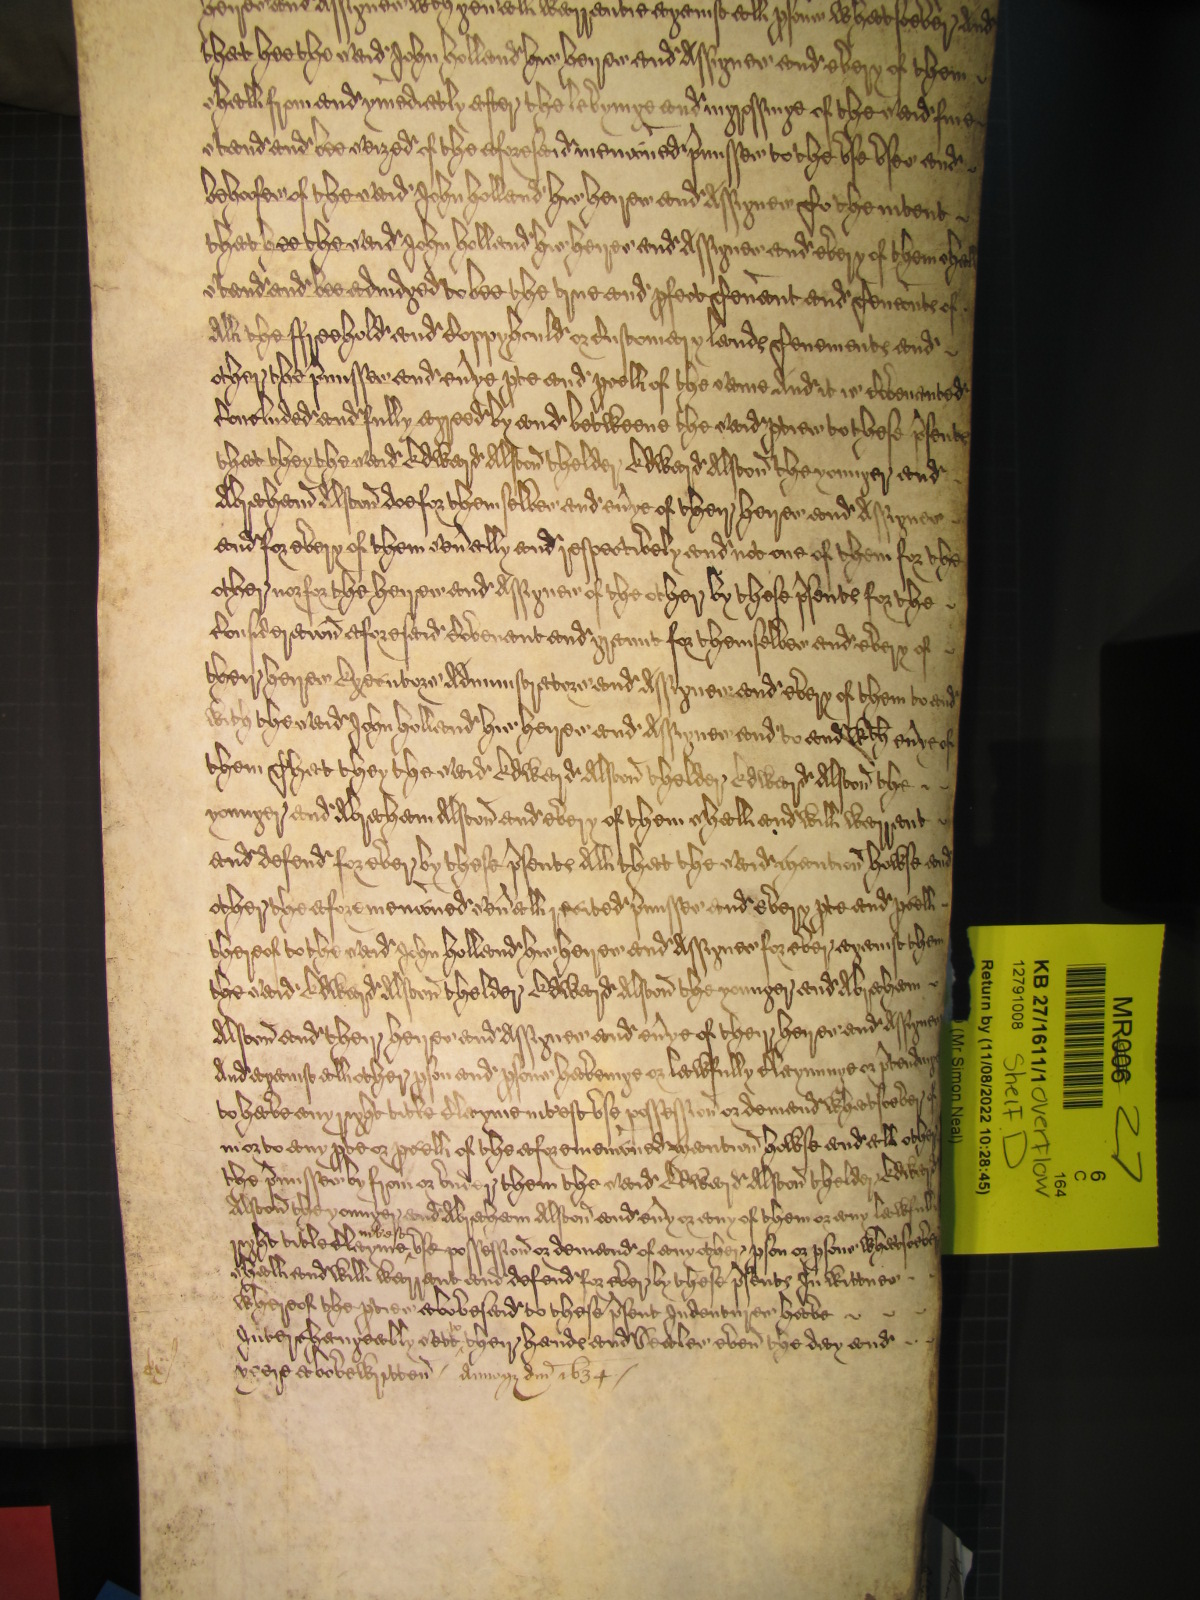 heires and Assignes wth gen'all warrantie against all p'sons whatsoever, And
that hee the said John Holland his heires and Assignes and every of them
shall from and ymediatly after, the levyinge and ingrossinge of the said fine
stand and bee seized of the aforesaid menc̄oned p'misses to the vse vses and
behoofes of the said John Holland his heires and Assignes To the intent
that hee the said John Holland his heires and Assignes and every of them shall
stand and bee adiudged to bee the true and p'fect Tenant and Tenants of
All the ffreehold and Coppyhould or Customary lands Tenements and
other, the p'misses and eu'ye p'te and p'cell of the same And it is Covenanted
Concluded and fully agreed by and betweene the said p'ties to these p'sents
that they the said Edward Alston thelder, Edward Alston the younger, and
Abraham Alston doe for themselves and eu'ye of their, heires and Assignes
and for every of them seu'ally and respectively and not one of them for the
other, nor for the heires and Assignes of the other, by these p'sents for the
Considerac̄on aforesaid Covenant and graunt for themselves and every of
their, heires Executors Administrators and Assignes and every of them to and
with the said John Holland his heires and Assignes and to and wth eu'ye of
them That they the said Edward Alston thelder, Edward Alston the
younger, and Abraham Alston and every of them shall and will warrant
and defend for ever, by these p'sents All that the said Mantion howse and
other, the aforemenc̄oned seu'all recited p'misses and every p'te and p'cell
thereof to the said John Holland his heires and Assignes for ever, against them
the said Edward Alston thelder, Edward Alston the younger, and Abraham
Alston and their, heires and Assignes and eu'ye of their, heires and Assignes
And against all other, p'son and p'sons haveinge or lawfully Clayminge or p'tendinge
to have any right title Clayme intrest vse possession or demand whatsoever, of
in or to any p'te or p'cell of the aforemenc̄oned mantion howse and all other
the p'misses by from or vnder, them the said Edward Alston thelder, Edward
Alston the younger, and Abraham Alston and eu'y or any of them or any lawfull
right title Clayme intrest vse possession or demand of any other, p'son or p'sons whatsoever
shall and will warrant and defend for ever, by these p'sents In wittnes
whereof the p'ties abovesaid to these p'sent Indentures have
Interchangeably sett to their, hands and Seales even the day and
yeere abovewritten / Annoq₃ dm̄ 1634 /
MR006
27
6
C
164
KB 27/1611/1 overflow
12791008 Shelf D
Return by (11/08/2022 10:28:45)
(Mr Simon Neal)